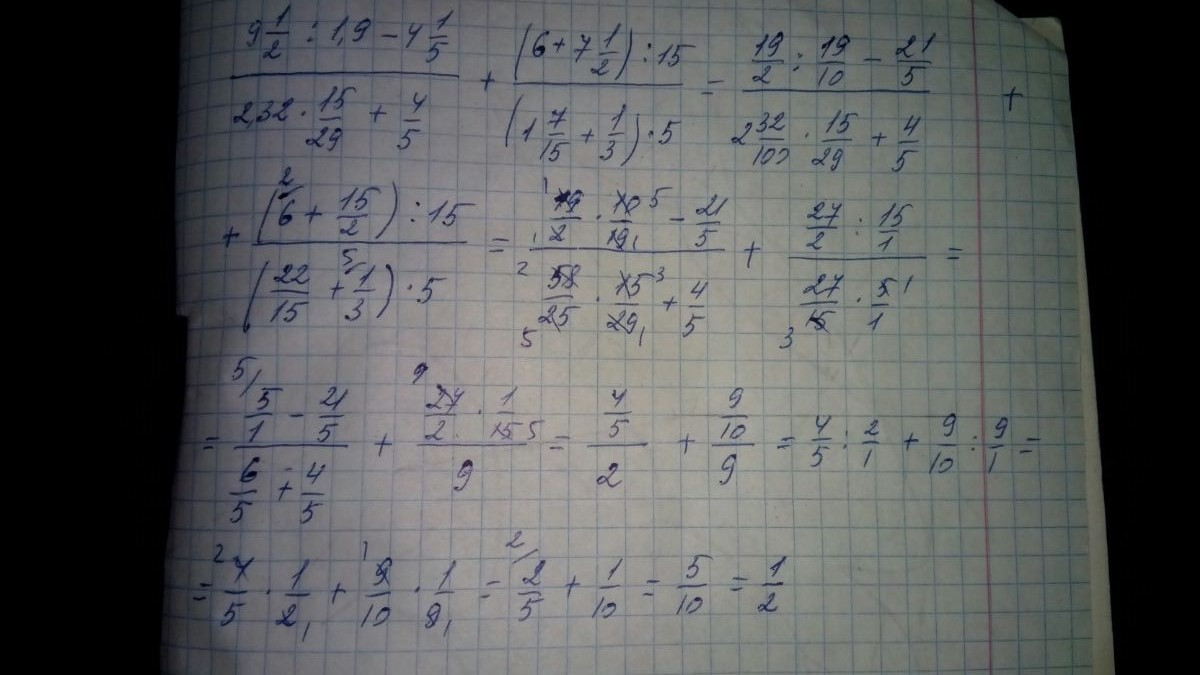 (9 1/2 : 1,9 − 4 1/5)/(2,32 · 15/29 + 4/5) + ((6 + 7 1/2) : 15)/((1 7/15 + 1/3) · 5) = (19/2 : 19/10 − 21/5)/(2 32/100 · 15/29 + 4/5) +
+ ((6 + 15/2) : 15)/((22/15 + 1/3) · 5) = (19/2 · 10/19 − 21/5)/(58/25 · 15/29 + 4/5) + (27/2 : 15/1)/(27/15 · 5/1) =
= (5/1 − 21/5)/(6/5 + 4/5) + (27/2 · 1/15)/9 = (4/5)/2 + (9/10)/9 = 4/5 : 2/1 + 9/10 : 9/1 =
= 4/5 · 1/2 + 9/10 · 1/9 = 2/5 + 1/10 = 5/10 = 1/2